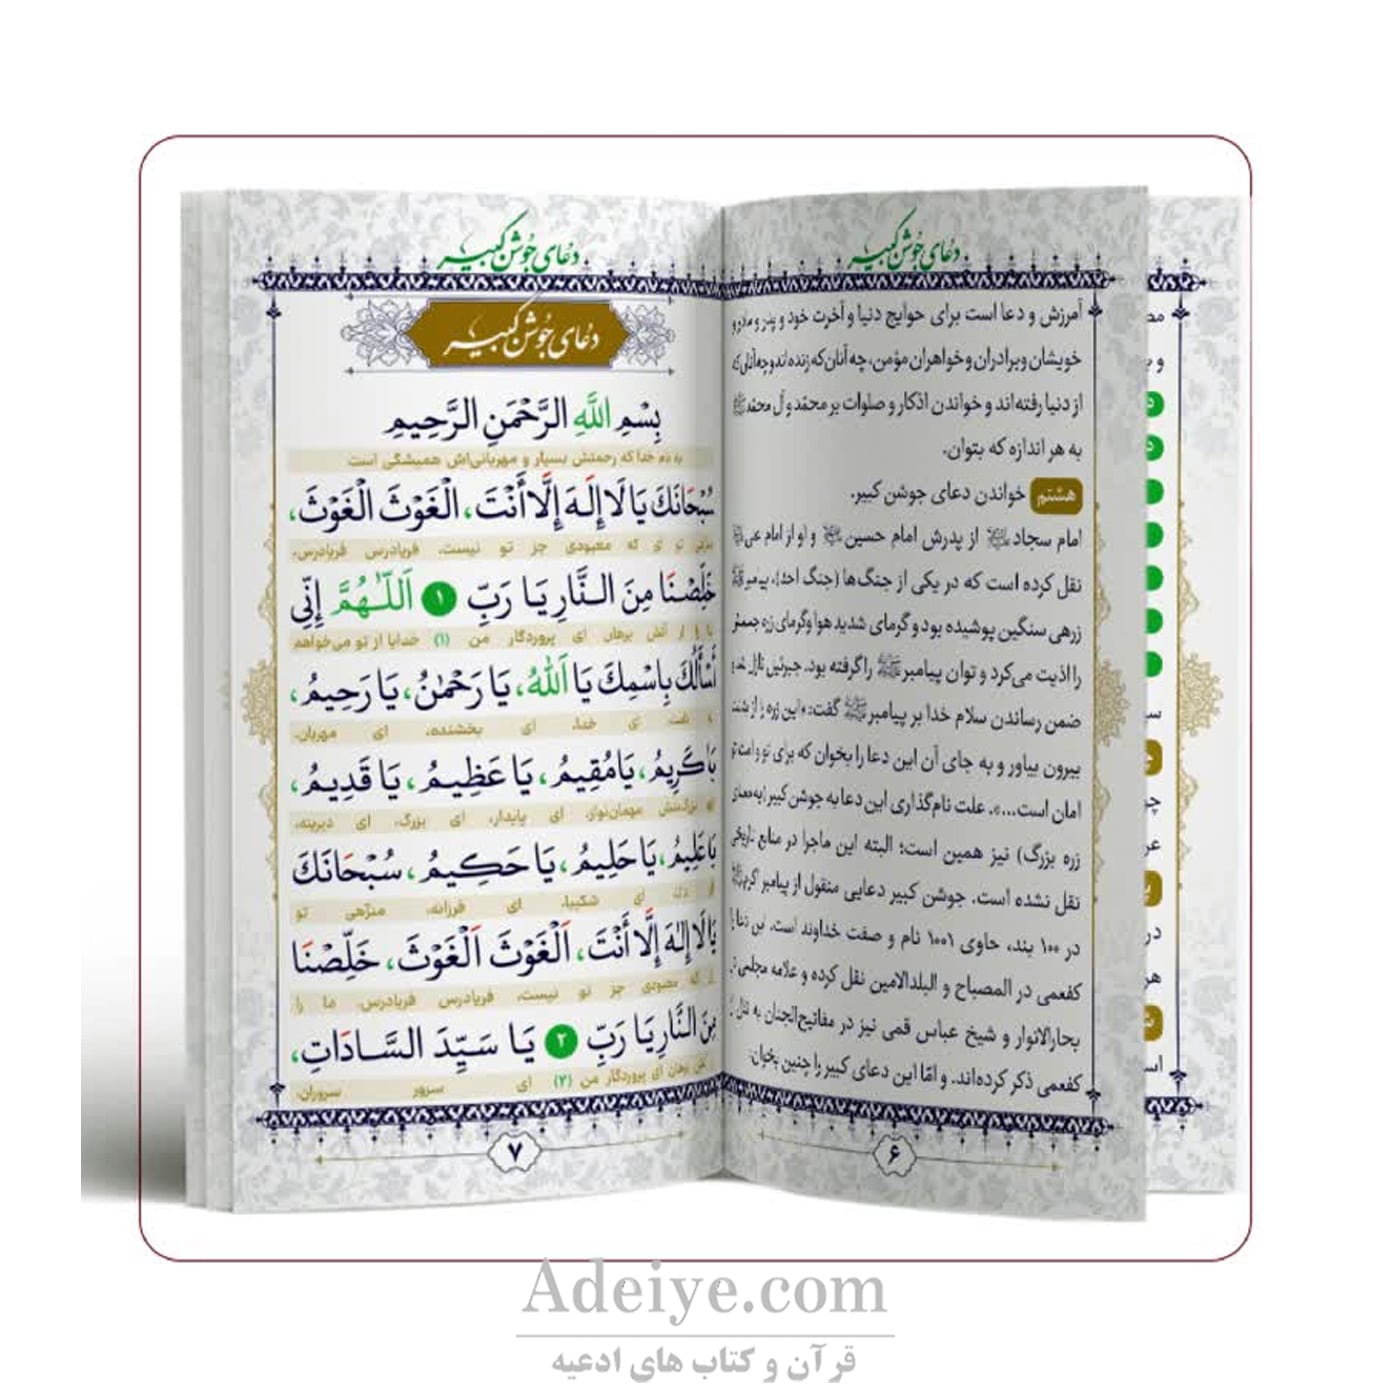 دعای جوشن کبیر
آمرزش و دعا است برای حوایج دنیا و آخرت خود و پدر و مادر و
خویشان و برادران و خواهران مؤمن، چه آنان که زنده‌اند و چه آنانی که
از دنیا رفته‌اند و خواندن اذکار و صلوات بر محمّد و آل محمّد
به هر اندازه که بتوان.
هشتم خواندن دعای جوشن کبیر.
امام سجاد از پدرش امام حسین و او از امام علی
نقل کرده است که در یکی از جنگ‌ها (جنگ احد)، پیامبر
زرهی سنگین پوشیده بود و گرمای شدید هوا و گرمای زره جسمش
را اذیت می‌کرد و توان پیامبر ﷺ را گرفته بود. جبرئیل نازل شد و
ضمن رساندن سلام خدا بر پیامبر ﷺ گفت: «این زره را از تنت
بیرون بیاور و به جای آن این دعا را بخوان که برای تو و امت تو
امان است...». علت نام‌گذاری این دعا به جوشن کبیر (به معنای
زره بزرگ) نیز همین است؛ البته این ماجرا در منابع تاریخی
نقل نشده است. جوشن کبیر دعایی منقول از پیامبر اکرم
در ۱۰۰ بند، حاوی ۱۰۰۱ نام و صفت خداوند است. این دعا را
کفعمی در المصباح و البلدالامین نقل کرده و علامه مجلسی در
بحارالانوار و شیخ عباس قمی نیز در مفاتیح‌الجنان به نقل از
کفعمی ذکر کرده‌اند. و امّا این دعای کبیر را چنین بخوان:
۶
دعای جوشن کبیر
دعای جوشن کبیر
بِسْمِ اللَّهِ الرَّحْمَنِ الرَّحِیمِ
به نام خدا که رحمتش بسیار و مهربانی‌اش همیشگی است
سُبْحَانَكَ یَا لَا إِلَهَ إِلَّا أَنْتَ، الْغَوْثَ الْغَوْثَ،
منزهی تو ای که معبودی جز تو نیست، فریادرس فریادرس،
خَلِّصْنَا مِنَ النَّارِ یَا رَبِّ ۱ اَللّٰهُمَّ إِنِّی
ما را از آتش برهان ای پروردگار من (۱) خدایا از تو می‌خواهم
أَسْأَلُكَ بِاسْمِكَ یَا اَللهُ، یَا رَحْمٰنُ، یَا رَحِیمُ،
خدا، ای بخشنده، ای مهربان،
یَا كَرِیمُ، یَا مُقِیمُ، یَا عَظِیمُ، یَا قَدِیمُ،
مهمان‌نواز، ای پایدار، ای بزرگ، ای دیرینه،
یَا عَلِیمُ، یَا حَلِیمُ، یَا حَكِیمُ، سُبْحَانَكَ
ای شکیبا، ای فرزانه، منزّهی تو
یَا لَا إِلٰهَ إِلَّا أَنْتَ، اَلْغَوْثَ اَلْغَوْثَ، خَلِّصْنَا
که معبودی جز تو نیست، فریادرس فریادرس، ما را
مِنَ النَّارِ یَا رَبِّ ۲ یَا سَیِّدَ السَّادَاتِ،
برهان ای پروردگار من (۲) ای سرور سروران،
۷
Adeiye.com
قرآن و کتاب های ادعیه